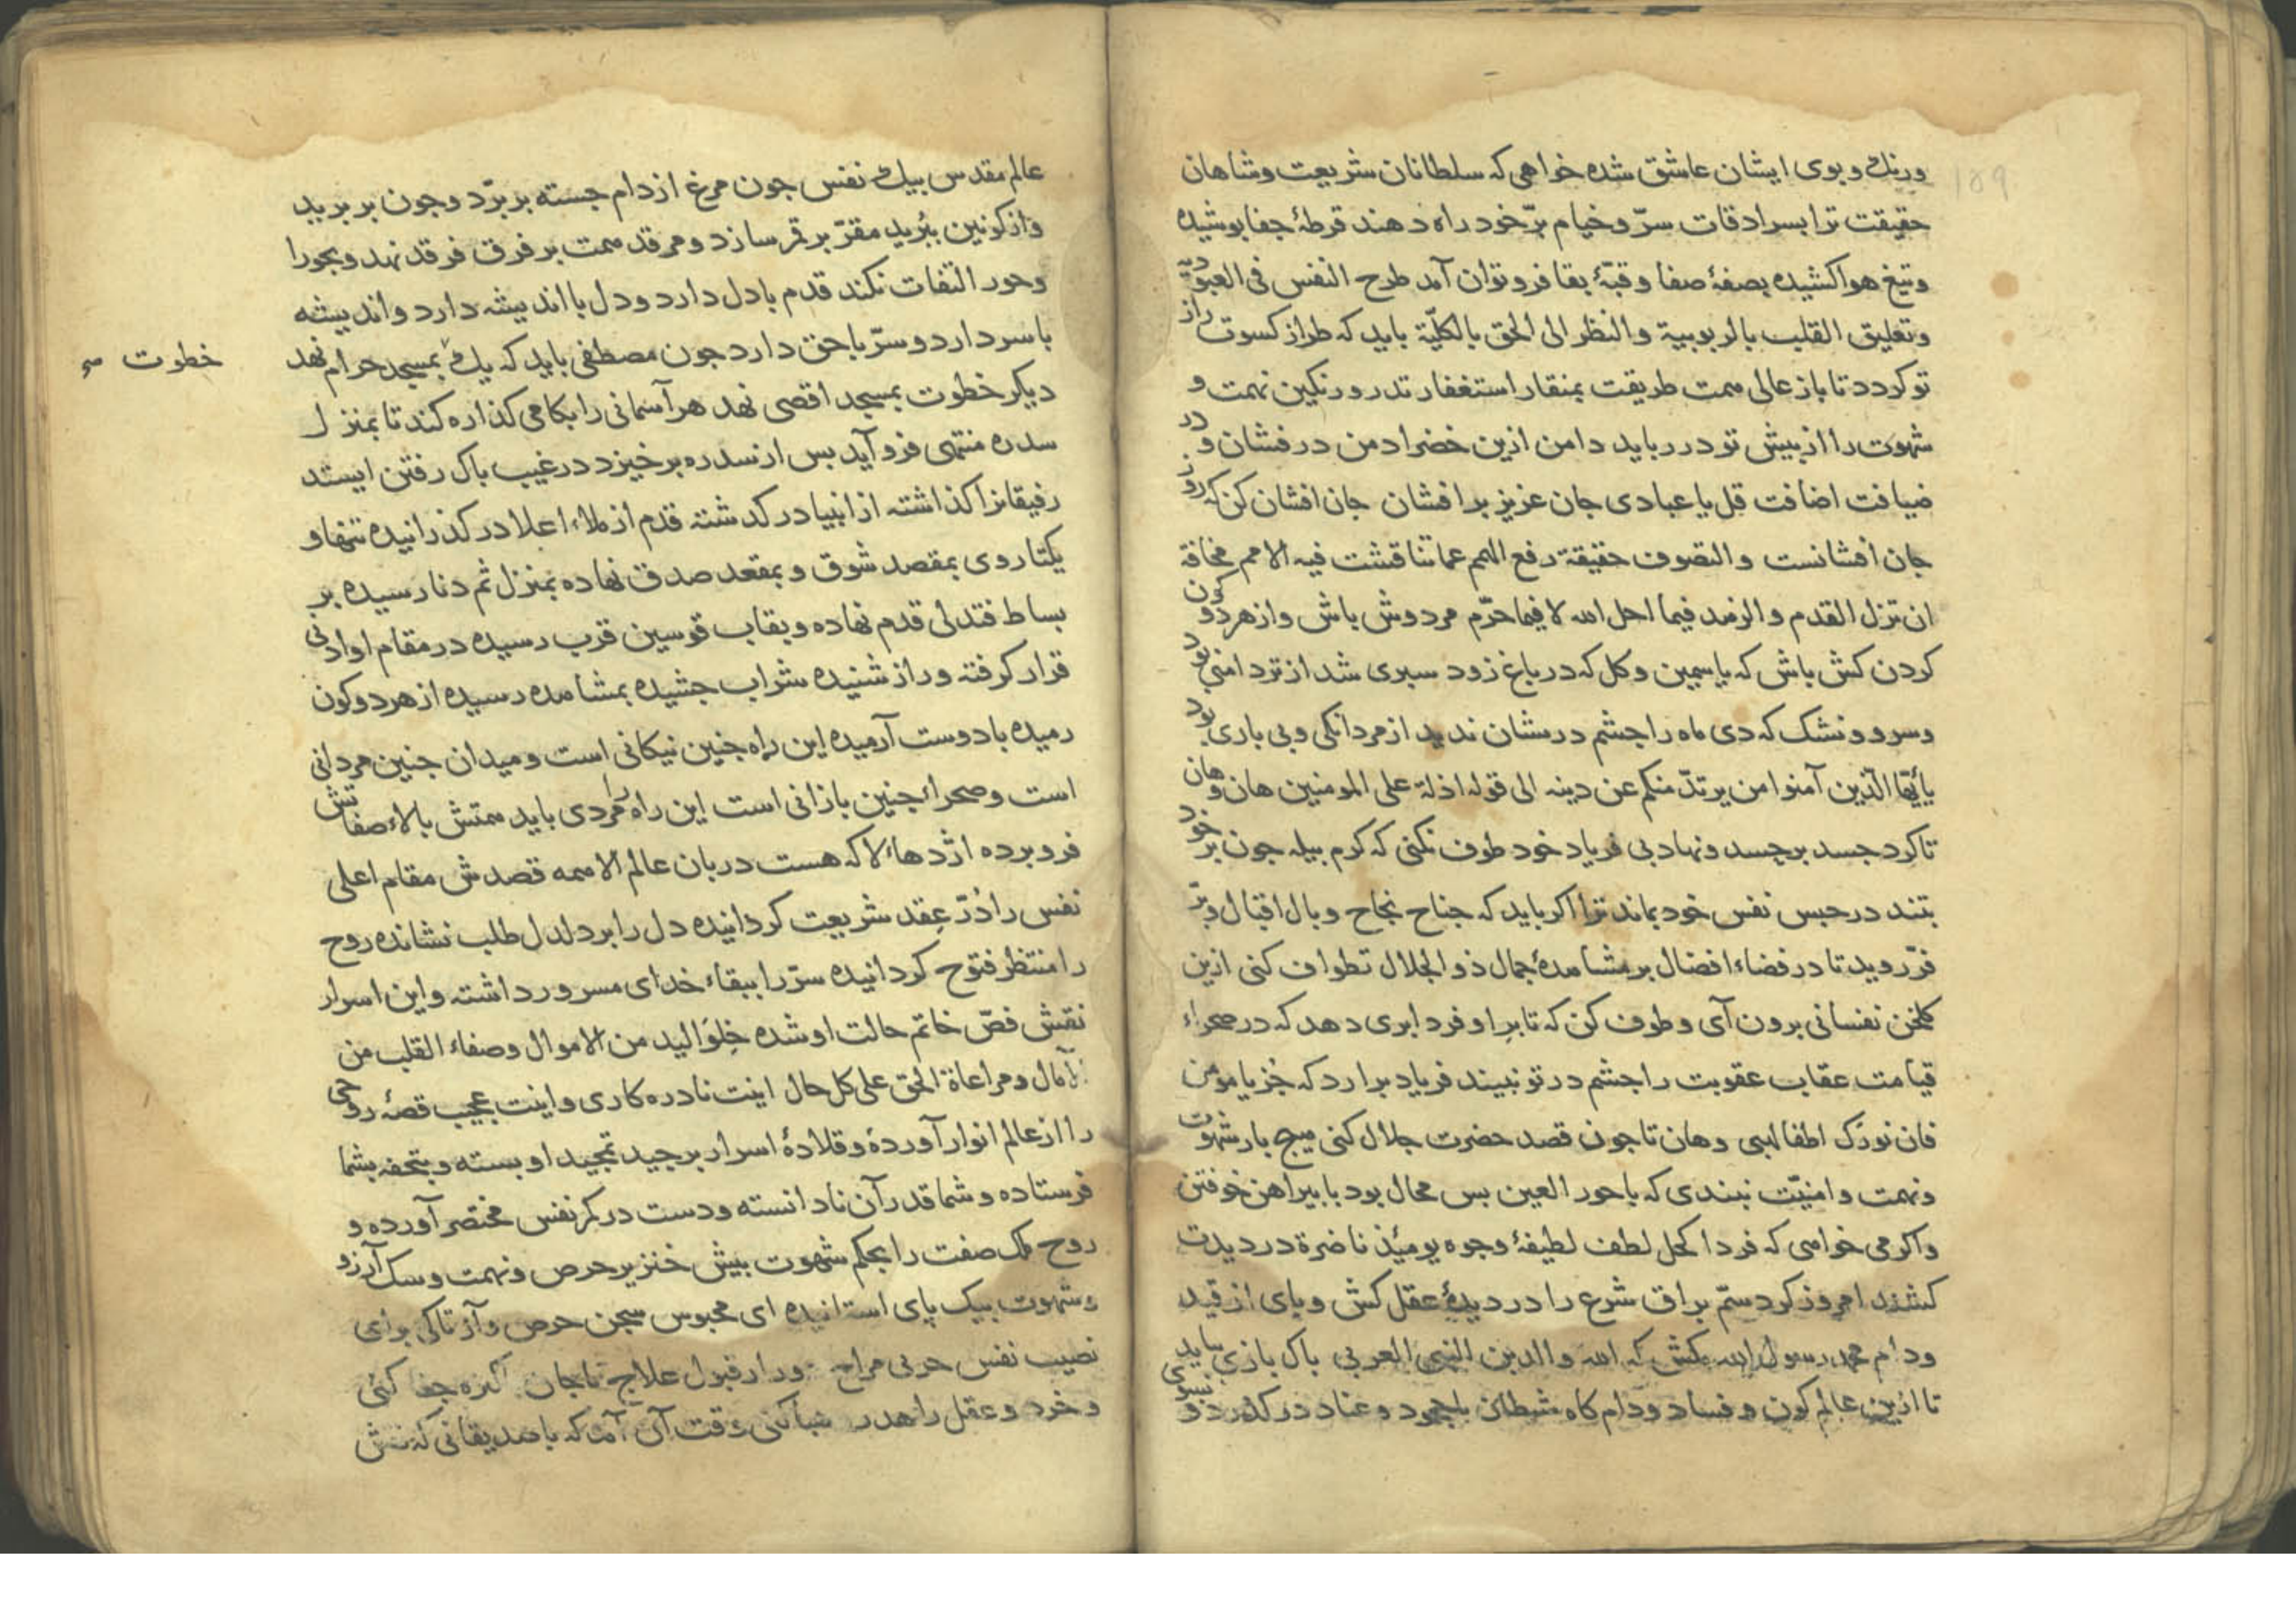 ورنك وبوی ایشان عاشق شده خواهی که سلطانان شریعت وشاهان
حقیقت ترا بسرادقات سرّ وخیام برّ خود راه دهند قرطهٔ جفا بوشیده
وتیغ هوا کشیده بصفهٔ صفا وقبّهٔ بقا فرو توان آمد طرح النفس فی العبودیّة
وتعلیق القلب بالربوبیة والنظر الی الحق بالکلّیّة باید که طراز کسوت راز
تو کردد تا باز عالی همت طریقت بمنقار استغفار تذرو رنکین نهمت و
شهوت را از بیش تو در رباید دامن ازین خضرا دمن در فشان و در
ضیافت اضافت قل یا عبادی جان عزیز بر افشان جان افشان کن که روز
جان افشانست والتصوف حقیقة رفع الهمم عما تناقشت فیه الامم مخافة
ان تزل القدم والزهد فیما احل الله لا فیما حرّم مردوش باش واز هر دو کون
کردن کش باش که یاسمین وکل که در باغ زود سبری شد از تردامنی بود
وسرو ونشک که دی ماه را جشم درشان ندید از مردانکی وبی باری بود
یا أیّها الّذین آمنوا من یرتدّ منکم عن دینه الی قوله اذلة علی المومنین هان وهان
تا کرد جسد بر جسد ونهاد بی فریاد خود طوف نکنی که کرم بیله جون بر خود
بتند در حبس نفس خود بماند ترا اکر باید که جناح نجاح وبال اقبال وبرّ
فرّ روید تا در فضاء افضال بر مشاهدهٔ جمال ذو الجلال تطواف کنی ازین
کلخن نفسانی برون آی وطوف کن که تا برِ او فردا بری دهد که در صحراء
قیامت عقاب عقوبت را جشم در تو نبیند فریاد برارد که جُز یا مومن
فان نورک اطفا لهبی وهان تا جون قصد حضرت جلال کنی هیج بار شهوت
ونهمت وامنیّت نبندی که با حور العین بس محال بود با بیراهن خوفتن
واکر می خواهی که فردا کحل لطف لطیفهٔ وجوه یومئذ ناضرة در دیدت
کشند امروز کرد سمّ براق شرع را در دیدهٔ عقل کش وبای از قید
ودام محمد رسول الله مکش که الله والدین النبی العربی باک بازی بباید
تا ازین عالم کون وفساد ودام کاه شیطان با جحود وعناد در کذرد وبسوی
عالم مقدس بیك نفس جون مرغ از دام جسته بر برّد وجون بر برید
واز کونین ببُرید مقرّ بر قمر سازد ومرقد همت بر فرق فرقد نهد وبحورا
وحور التفات نکند قدم با دل دارد ودل با اندیشه دارد واندیشه
با سر دارد وسرّ با حق دارد جون مصطفی باید که یك بمسجد حرام نهد
خطوت
دیکر خطوت بمسجد اقصی نهد هر آسمانی را بکامی کذاره کند تا بمنزل
سدره منتهی فرو آید بس از سدره بر خیزد در غیب باک رفتن ایستد
رفیقانرا کذاشته از انبیا در کدشته قدم از ملاء اعلا در کذرانیده تنها و
یکتا روی بمقصد شوق وبمقعد صدق نهاده بمنزل ثم دنا رسیده بر
بساط فتدلی قدم نهاده وبقاب قوسین قرب رسیده در مقام او ادنی
قرار کرفته وراز شنیده شراب جشیده بمشاهده رسیده از هر دو کون
رمیده با دوست آرمیده این راه جنین نیکانی است ومیدان جنین مردانی
است وصحراء جنین بازانی است این راه را مردی باید همتش بالاء صفاتش
فرو برده اژدهاء لا که هست دربان عالم الا همه قصدش مقام اعلی
نفس را دُرّ عِقد شریعت کردانیده دل را بر دلدل طلب نشانده روح
را منتظر فتوح کردانیده سرّ را ببقاء خدای مسرور داشته واین اسرار
نقش فصّ خاتم حالت او شده خِلوَ الید من الاموال وصفاء القلب من
الآمال ومراعاة الحق علی کل حال اینت نادره کاری واینت عجیب قصهٔ روحی
را از عالم انوار آوردهٔ وقلادهٔ اسرار بر جید تمجید او بسته وبتحفه بشما
فرستاده وشما قدر آن نادانسته ودست در کمر نفس مختصر آورده و
روح ملک صفت را بحکم شهوت بیش خنزیر حرص ونهمت وسک آرزو
وشهوت بیک پای استانیده ای محبوس سجن حرص وآز تا کی برای
نصیب نفس حربی مراح ودار قبول علاج با جان کره جفا کنی
وخرد وعقل را هدر هبا کنی وقت آن آمد که با صدیقانی که نقش